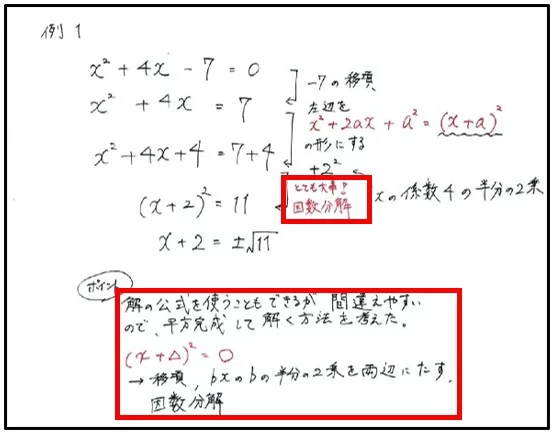 例 1
x² + 4x − 7 = 0
−7の移項
x² + 4x = 7
左辺を
x² + 2ax + a² = (x+a)²
の形にする
x² + 4x + 4 = 7 + 4
+2²
xの係数4の半分の2乗
とても大事!
因数分解
(x+2)² = 11
x + 2 = ±√11
ポイント
解の公式を使うこともできるが 間違えやすい
ので、平方完成して解く方法を考えた。
(x+△)² = ○
→ 移項, bxのbの半分の2乗を両辺にたす,
因数分解